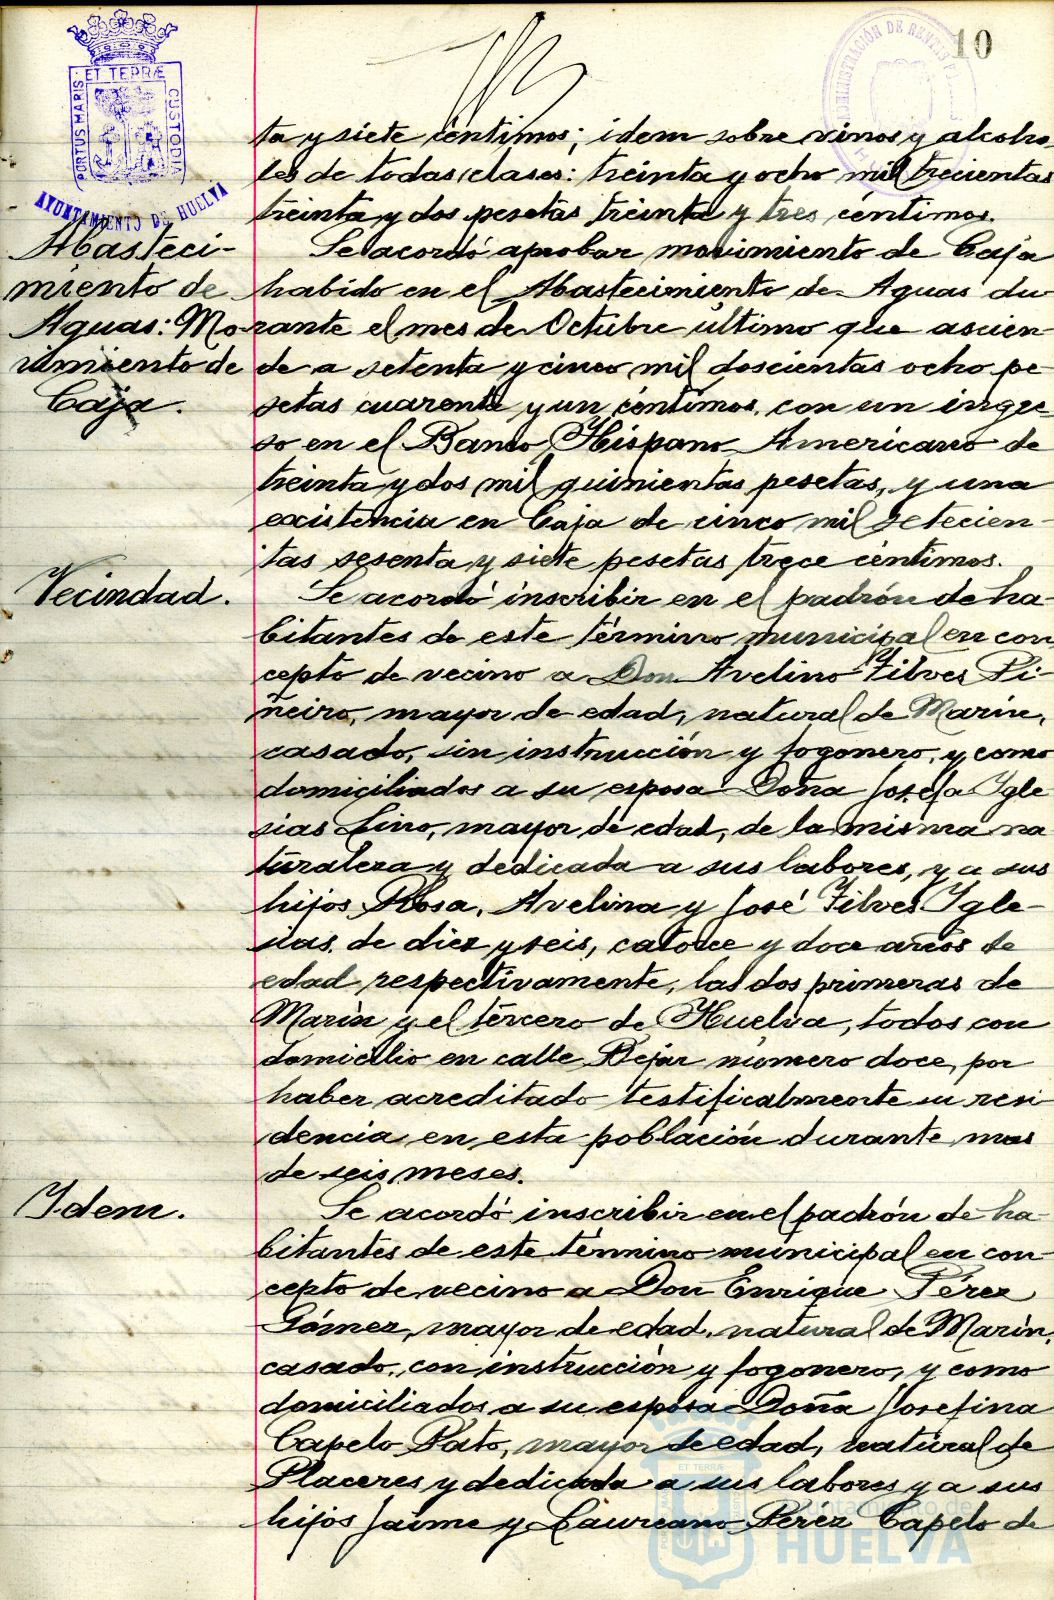 10
PORTUS MARIS ET TERRÆ CUSTODIA
AYUNTAMIENTO DE HUELVA
ADMINISTRACIÓN DE RENTAS
ta y siete céntimos; idem sobre vinos y alcoho
les de todas clases: treinta y ocho mil trecientas
treinta y dos pesetas treinta y tres céntimos.
Abasteci-
miento de
Aguas: Mo-
vimiento de
Caja.
Se acordó aprobar movimiento de Caja
habido en el Abastecimiento de Aguas du
rante el mes de Octubre último que ascien-
de a setenta y cinco mil doscientas ocho pe-
setas cuarenta y un céntimos, con un ingre-
so en el Banco Hispano-Americano de
treinta y dos mil quinientas pesetas, y una
existencia en Caja de cinco mil setecien-
tas sesenta y siete pesetas trece céntimos.
Vecindad.
Se acordó inscribir en el padrón de ha-
bitantes de este término municipal en con
cepto de vecino a Don Avelino Filves Pi-
ñeiro, mayor de edad, natural de Marín,
casado, sin instrucción y fogonero, y como
domiciliados a su esposa Doña Josefa Igle
sias Lino, mayor de edad, de la misma na
turaleza y dedicada a sus labores, y a sus
hijos Rosa, Avelina y José Filves Igle-
sias, de diez y seis, catorce y doce años de
edad respectivamente, las dos primeras de
Marín y el tercero de Huelva, todos con
domicilio en calle Bejar número doce, por
haber acreditado testificalmente su resi
dencia en esta población durante mas
de seis meses.
Idem.
Se acordó inscribir en el padrón de ha-
bitantes de este término municipal en con-
cepto de vecino a Don Enrique Pérez
Gómez, mayor de edad, natural de Marín,
casado, con instrucción y fogonero, y como
domiciliados a su esposa Doña Josefina
Capelo Pato, mayor de edad, natural de
Placeres y dedicada a sus labores y a sus
hijos Jaime y Laureano Pérez Capelo de
Ayuntamiento de
HUELVA